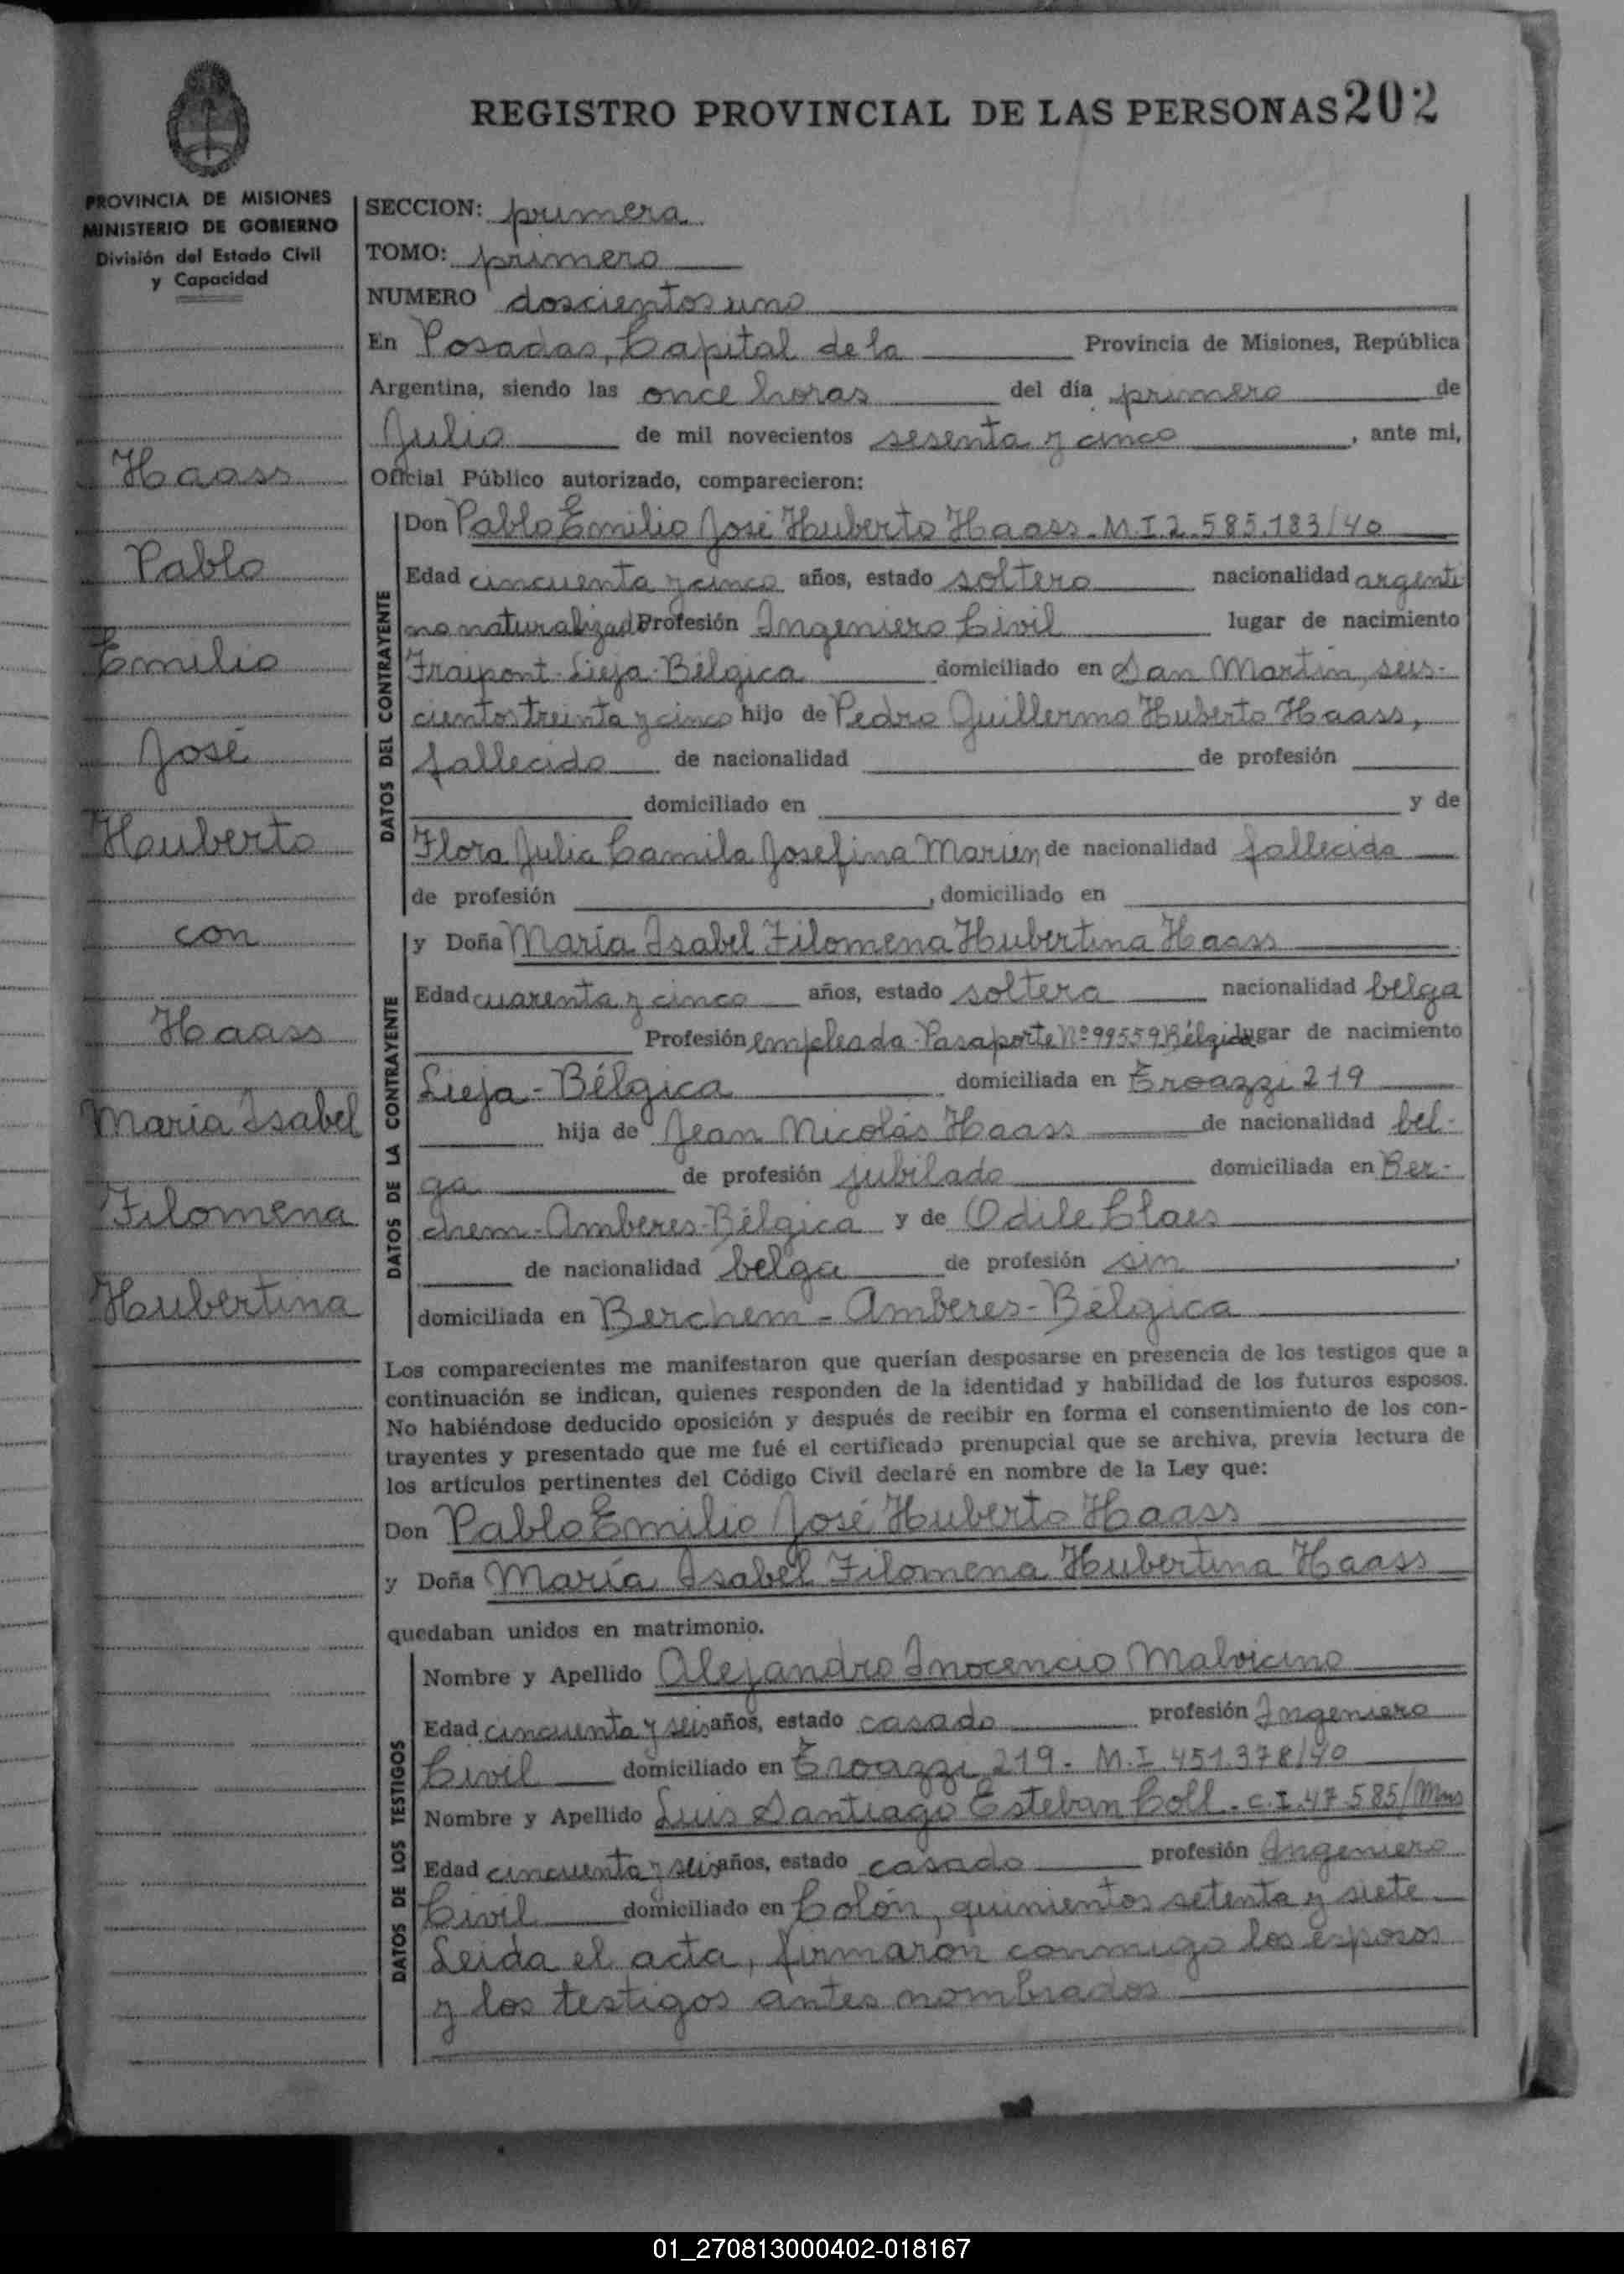 REGISTRO PROVINCIAL DE LAS PERSONAS 202
PROVINCIA DE MISIONES
MINISTERIO DE GOBIERNO
División del Estado Civil
y Capacidad
Haass
Pablo
Emilio
José
Huberto
con
Haass
María Isabel
Filomena
Hubertina
SECCION: primera
TOMO: primero
NUMERO doscientos uno
En Posadas, Capital de la Provincia de Misiones, República
Argentina, siendo las once horas del día primero de
Julio de mil novecientos sesenta y cinco, ante mi,
Oficial Público autorizado, comparecieron:
DATOS DEL CONTRAYENTE
Don Pablo Emilio José Huberto Haass. M.I. 2.585.183/40
Edad cincuenta y cinco años, estado soltero nacionalidad argenti
no naturalizado Profesión Ingeniero Civil lugar de nacimiento
Fraipont-Lieja-Bélgica domiciliado en San Martín, seis-
cientos treinta y cinco hijo de Pedro Guillermo Huberto Haass,
fallecido de nacionalidad de profesión
domiciliado en y de
Flora Julia Camila Josefina Marien de nacionalidad fallecida
de profesión , domiciliado en
DATOS DE LA CONTRAYENTE
y Doña María Isabel Filomena Hubertina Haass
Edad cuarenta y cinco años, estado soltera nacionalidad belga
Profesión empleada-Pasaporte Nº 99559 Bélgica lugar de nacimiento
Lieja-Bélgica domiciliada en Eroazzi 219
hija de Jean Nicolás Haass de nacionalidad bel-
ga de profesión jubilado domiciliada en Ber-
chem-Amberes-Bélgica y de Odile Claes
de nacionalidad belga de profesión sin,
domiciliada en Berchem-Amberes-Bélgica
Los comparecientes me manifestaron que querían desposarse en presencia de los testigos que a
continuación se indican, quienes responden de la identidad y habilidad de los futuros esposos.
No habiéndose deducido oposición y después de recibir en forma el consentimiento de los con-
trayentes y presentado que me fué el certificado prenupcial que se archiva, previa lectura de
los artículos pertinentes del Código Civil declaré en nombre de la Ley que:
Don Pablo Emilio José Huberto Haass
y Doña María Isabel Filomena Hubertina Haass
quedaban unidos en matrimonio.
DATOS DE LOS TESTIGOS
Nombre y Apellido Alejandro Inocencio Malvicino
Edad cincuenta y seis años, estado casado profesión Ingeniero
Civil domiciliado en Eroazzi 219. M.I. 451.378/40
Nombre y Apellido Luis Santiago Esteban Coll. C.I. 47.585/Mns
Edad cincuenta y seis años, estado casado profesión Ingeniero
Civil domiciliado en Colón, quinientos setenta y siete
Leida el acta, firmaron conmigo los esposos
y los testigos antes nombrados
01_270813000402-018167